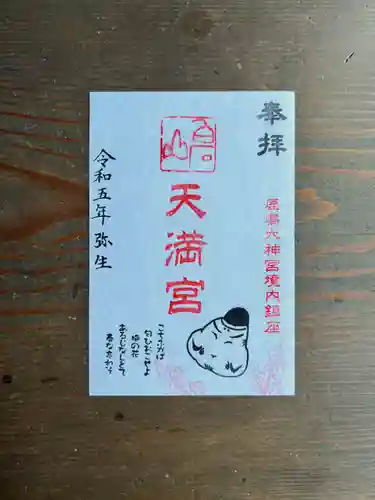 奉拝
鹿嶋大神宮境内鎮座
天満宮
令和五年 弥生
こちふかば
匂ひおこせよ
梅の花
あるじなしとて
春なわすれそ